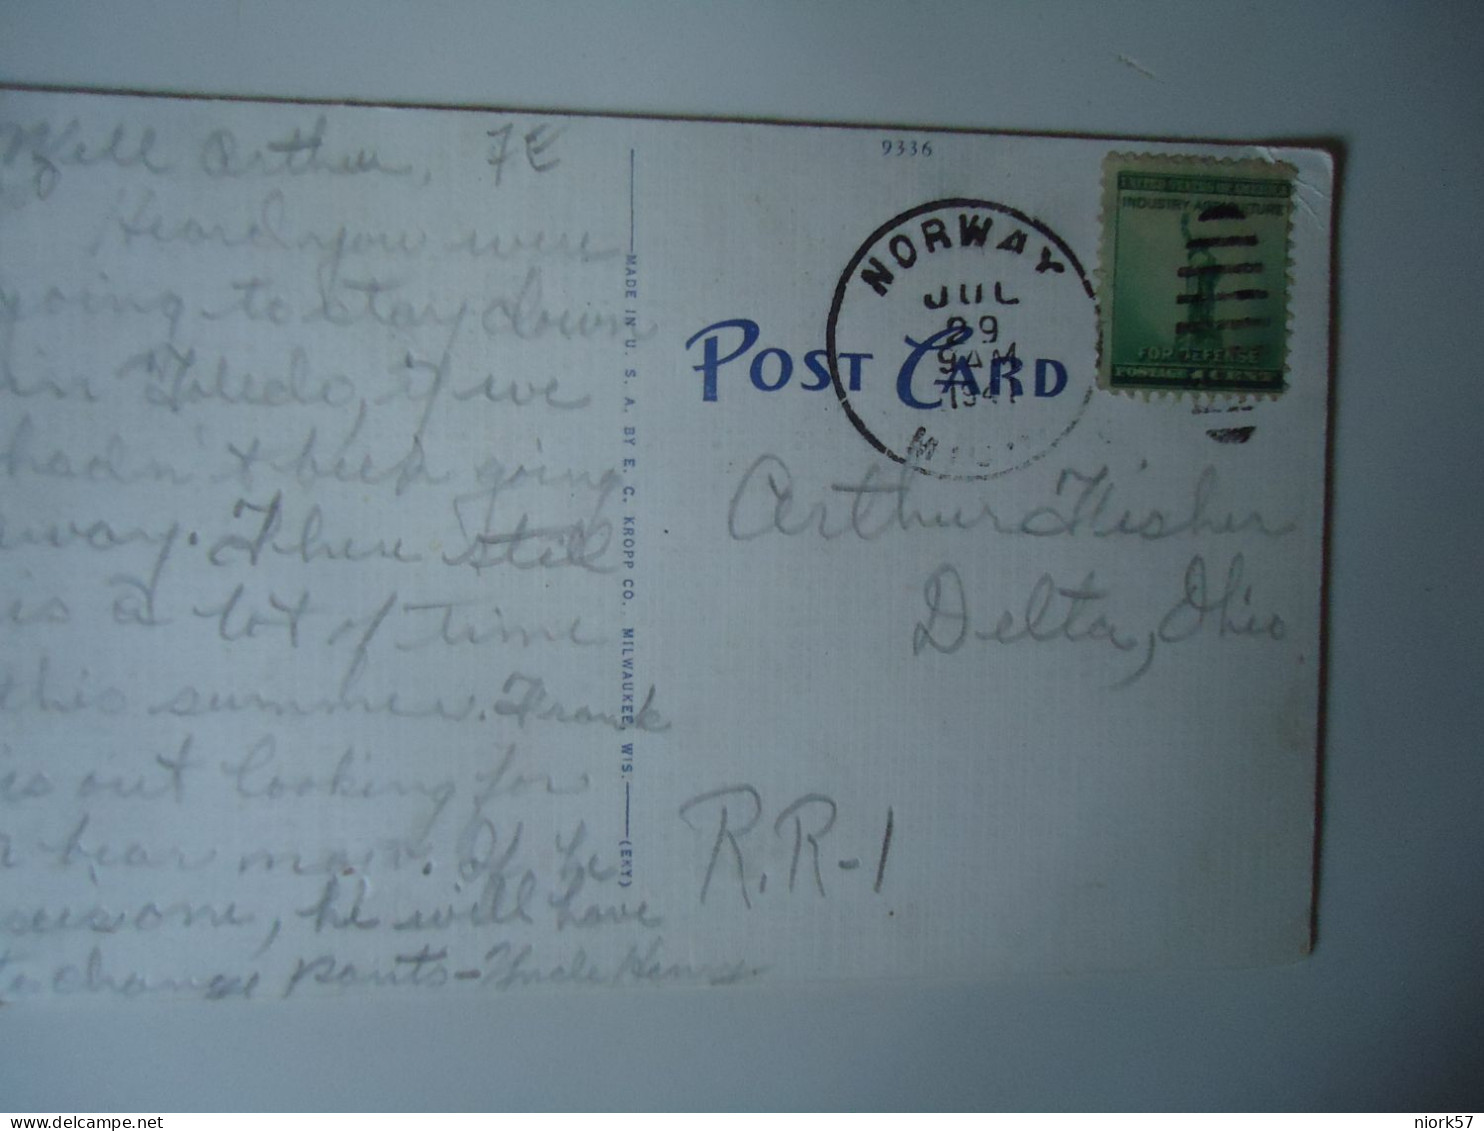 Well Arthur, 7E
Heard you were
going to stay down
in Toledo, if we
hadn't been going
away. There still
is a lot of time
this summer. Frank
is out looking for
a bear now. If he
sees one, he will have
to change pants - Uncle Henry
MADE IN U. S. A. BY E. C. KROPP CO. MILWAUKEE, WIS. (EKY)
9336
NORWAY
JUL
29
9 AM
1941
MICH
UNITED STATES OF AMERICA
INDUSTRY AGRICULTURE
FOR DEFENSE
POSTAGE 1 CENT
POST CARD
Arthur Fisher
Delta, Ohio
R.R-1
niork57